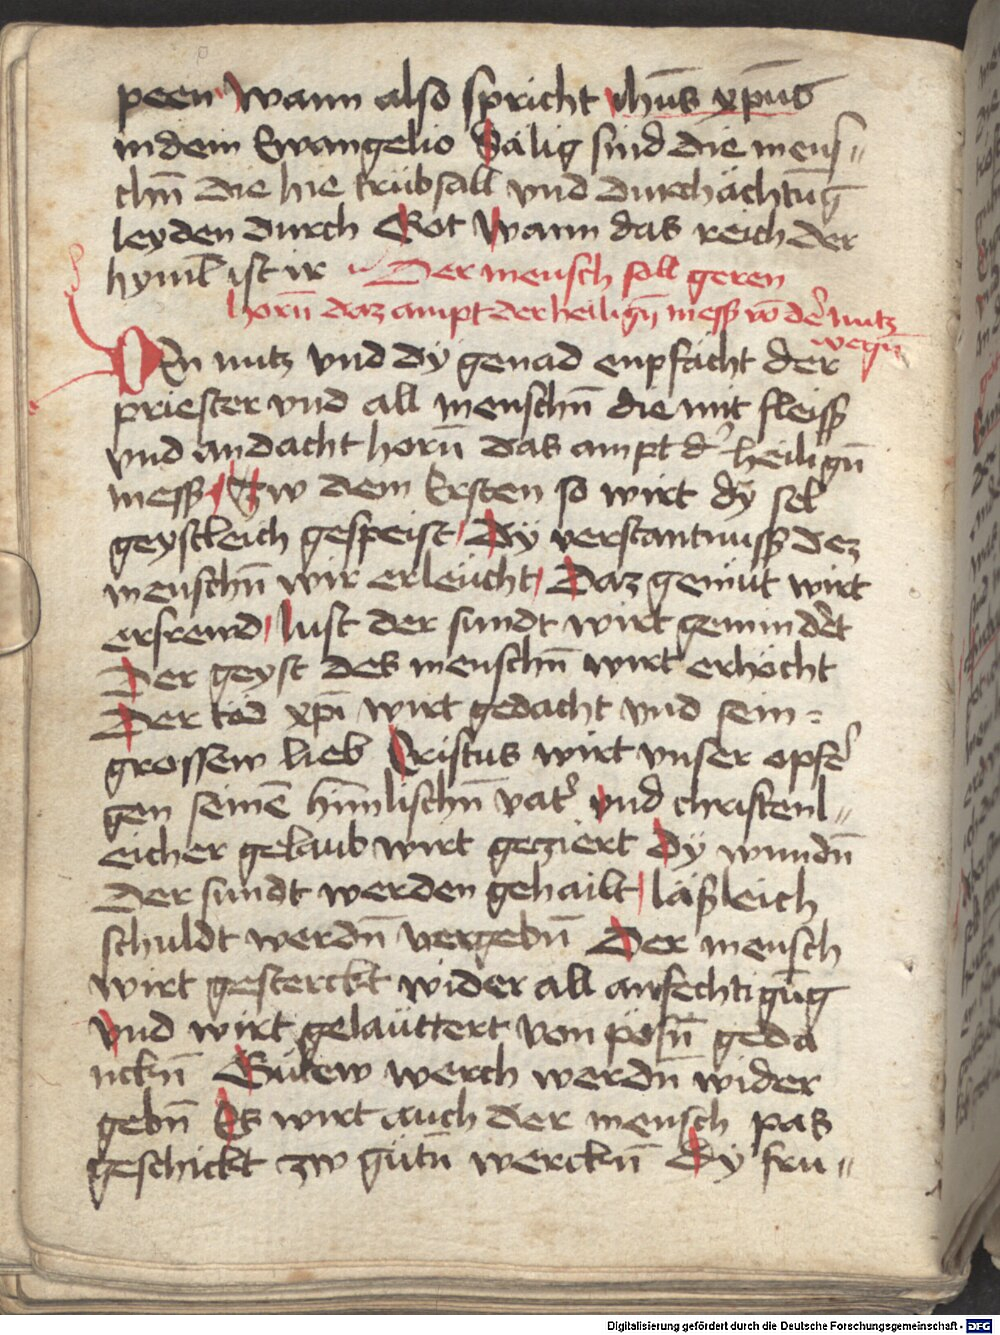 peen wann also spricht ihūs xpūs
in dem Ewangelio Sälig sind die mens〃
chn̄ die hie trübsall vnd durchächtūg
leyden durch Got Wann das reich der
hyml̄ ist ir Der mensch soll geren
horn̄ daz ampt der heilign̄ mess vō der nutz
wegn̄
Den nutz vnd dy genad enpfächt der
priester vnd all menschn̄ die mit fleiss
vnd andacht horn̄ das ampt d' heilign̄
mess Zw dem Ersten so wirt dy sel
geystleich gespeist Dy verstantnuss dez
menschn̄ wir erleücht Daz gemüt wirt
erfrewd lust der sundt wirt geminde't
Der geyst des menschn̄ wirt erhöcht
Der tod xpī wirt gedacht vnd sein =
grossew lieb Cristus wirt vnser opfe'
gen seinē him̄lischn̄ vat' vnd christenl〃
eicher gelaub wirt geziert Dy wundn̄
Der sundt werden gehailt läsleich
schuldt werdn̄ vergebn̄ Der mensch
wirt gesterckt wider all anfechtigūg
vnd wirt geläüttert von pösn̄ geda
nckn̄ Gütew werch werdn̄ wider
gebn̄ Es wirt auch der mensch pas
geschickt zw gutn̄ werckn̄ Dy fru〃
Digitalisierung gefördert durch die Deutsche Forschungsgemeinschaft - DFG